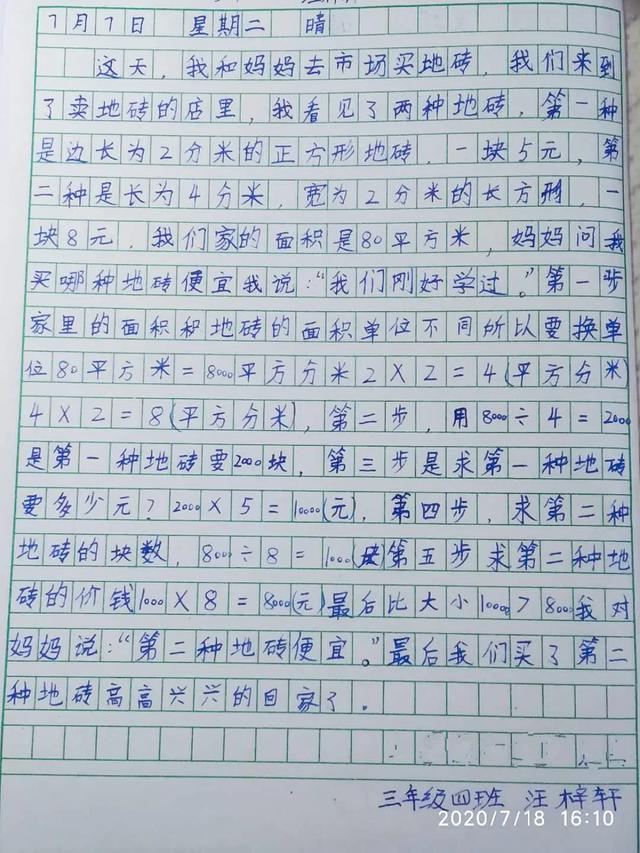 7月7日 星期二 晴
这天,我和妈妈去市场买地砖,我们来到
了卖地砖的店里,我看见了两种地砖,第一种
是边长为2分米的正方形地砖,一块5元,第
二种是长为4分米,宽为2分米的长方形,一
块8元,我们家的面积是80平方米,妈妈问我
买哪种地砖便宜我说:“我们刚好学过。”第一步
家里的面积和地砖的面积单位不同所以要换单
位80平方米=8000平方分米2×2=4(平方分米)
4×2=8(平方分米),第二步,用8000÷4=2000
是第一种地砖要2000块,第三步是求第一种地砖
要多少元?2000×5=10000(元),第四步,求第二种
地砖的块数,8000÷8=1000(块)第五步求第二种地
砖的价钱1000×8=8000(元)最后比大小10000>8000我对
妈妈说:“第二种地砖便宜。”最后我们买了第二
种地砖高高兴兴的回家了。
三年级四班 汪梓轩
2020/7/18 16:10